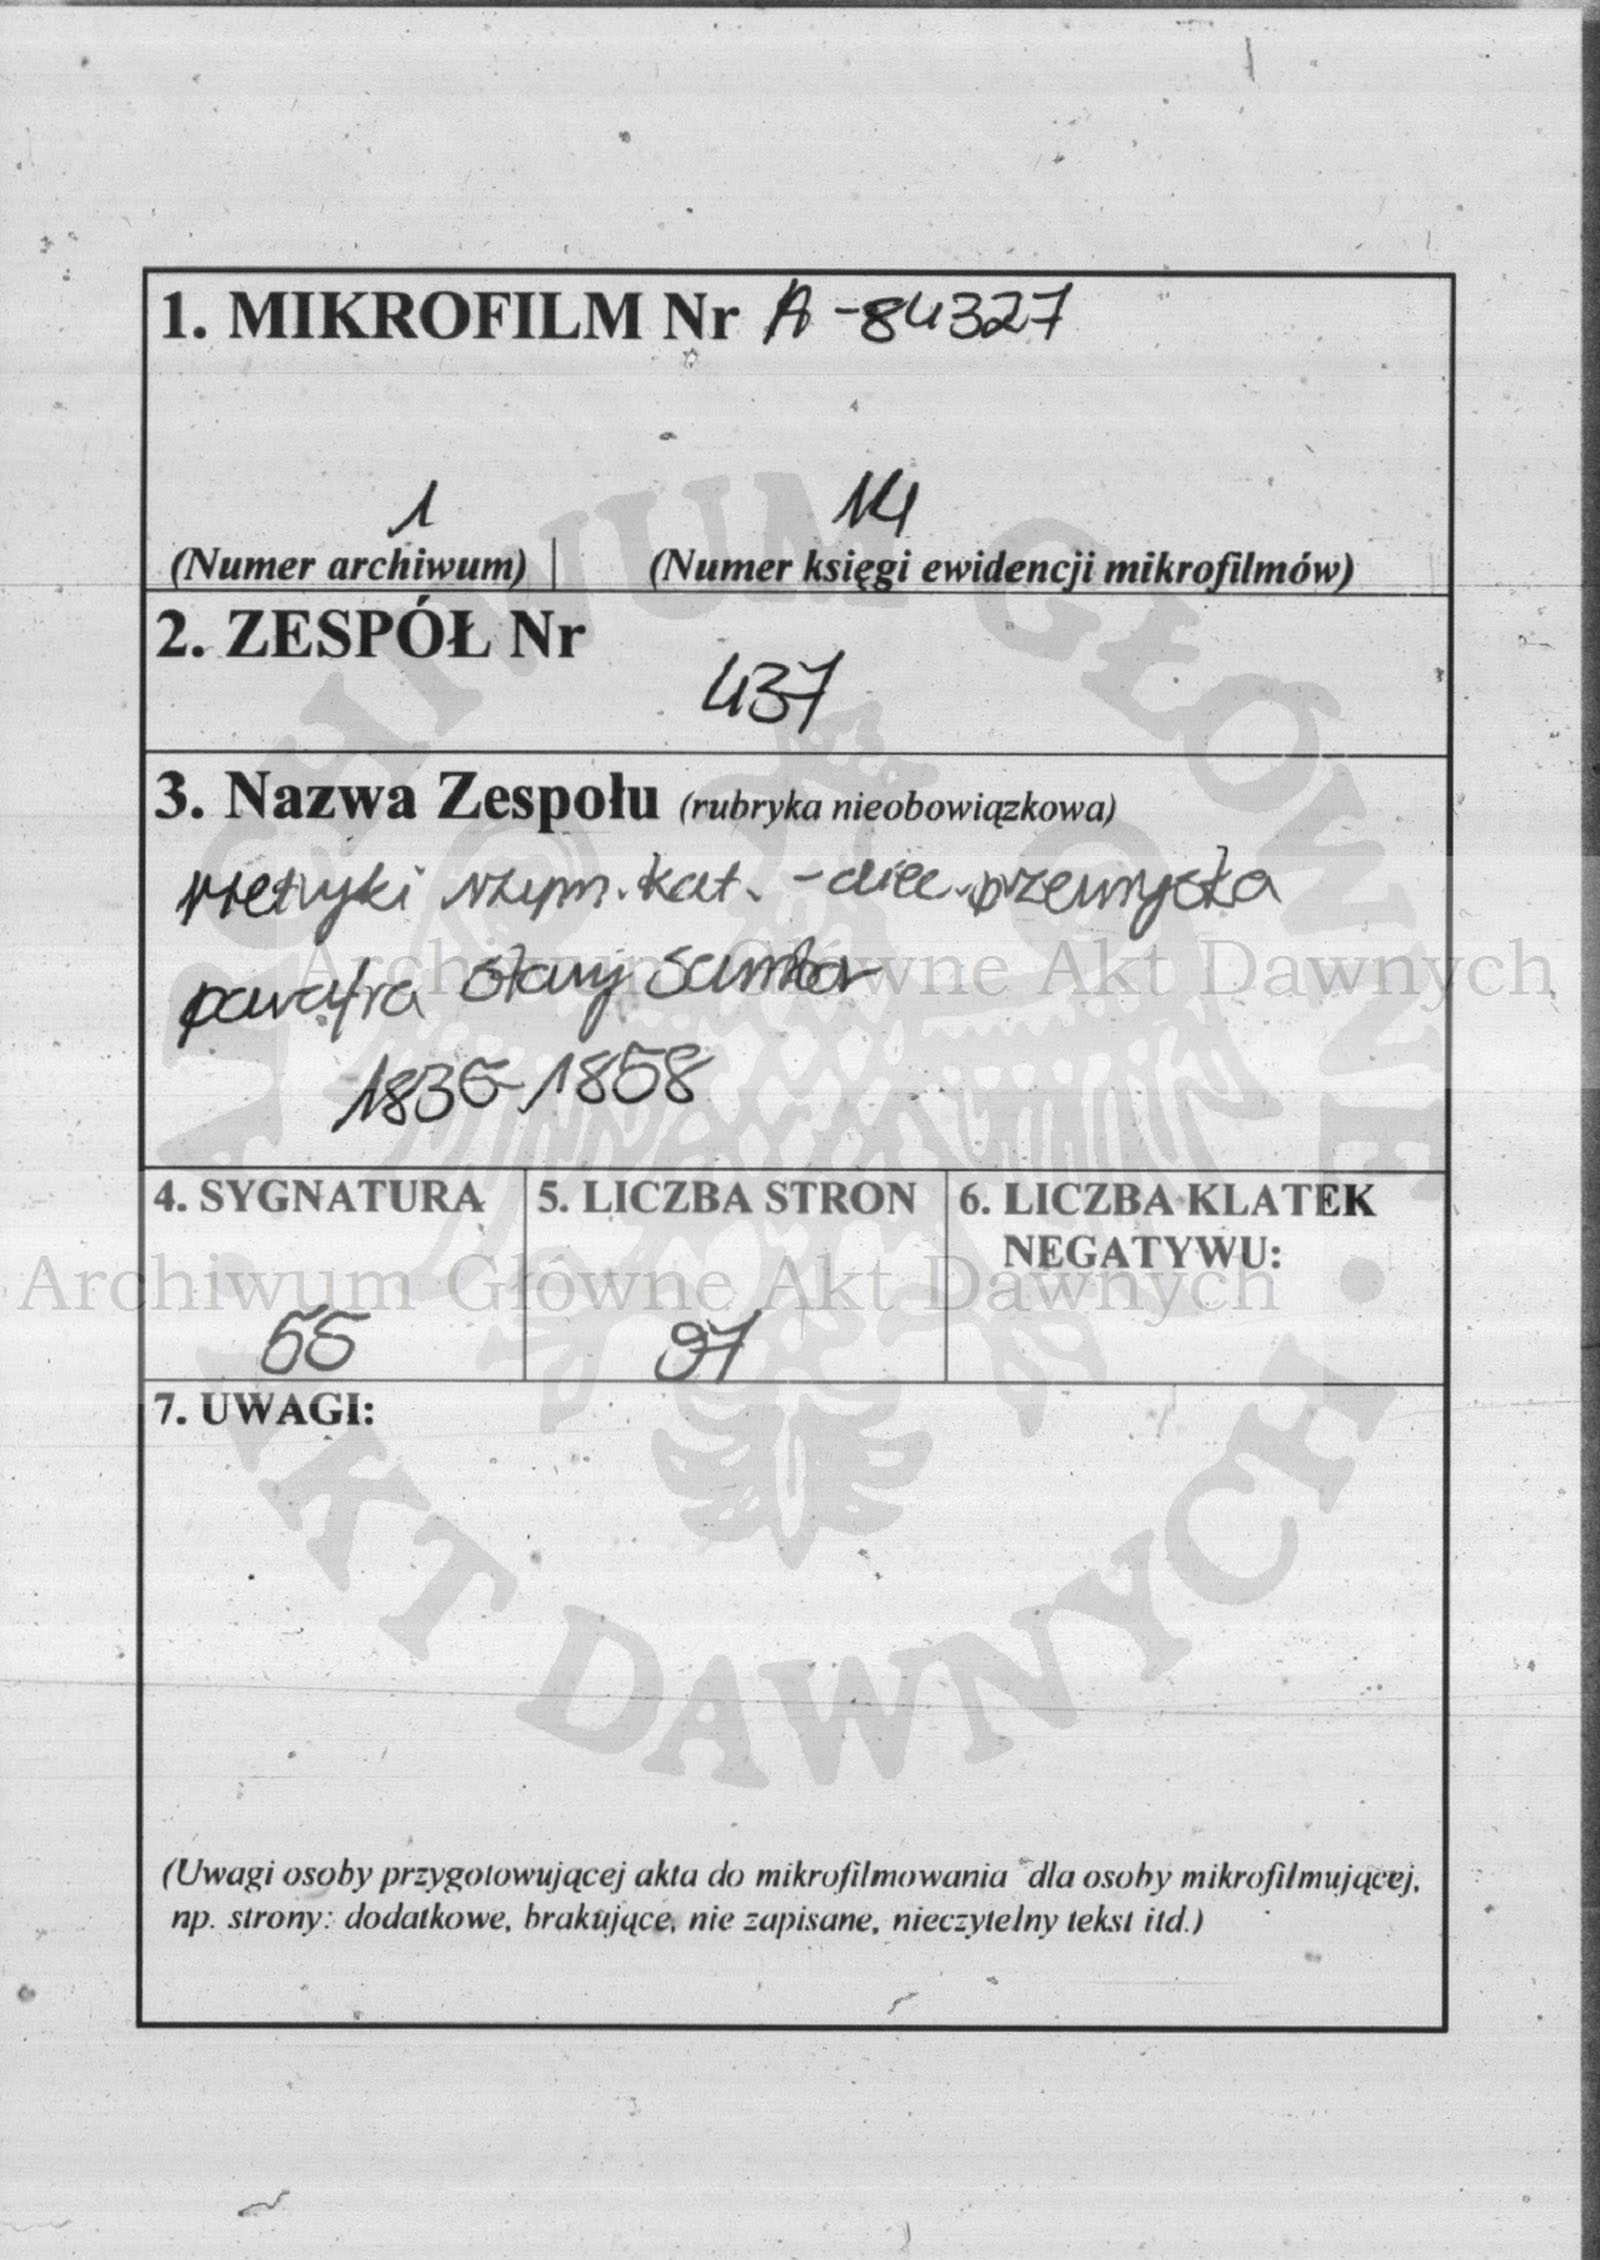 1. MIKROFILM Nr A-84327
1 14
(Numer archiwum) (Numer księgi ewidencji mikrofilmów)
2. ZESPÓŁ Nr
437
3. Nazwa Zespołu (rubryka nieobowiązkowa)
metryki rzym. kat. - diec. przemyska
parafia Stary Sambor
1836-1858
4. SYGNATURA 5. LICZBA STRON 6. LICZBA KLATEK
NEGATYWU:
55 97
7. UWAGI:
(Uwagi osoby przygotowującej akta do mikrofilmowania dla osoby mikrofilmującej,
np. strony: dodatkowe, brakujące, nie zapisane, nieczytelny tekst itd.)
ARCHIWUM GŁÓWNE AKT DAWNYCH
Archiwum Główne Akt Dawnych
Archiwum Główne Akt Dawnych